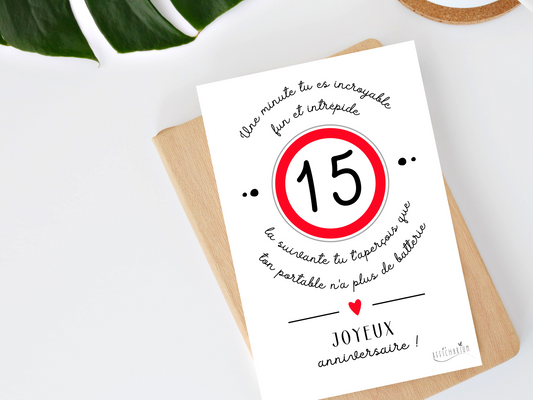 Une minute tu es incroyable
fun et intrépide
15
la suivante tu t'aperçois que
ton portable n'a plus de batterie
JOYEUX
anniversaire !
AFFICHARIUM